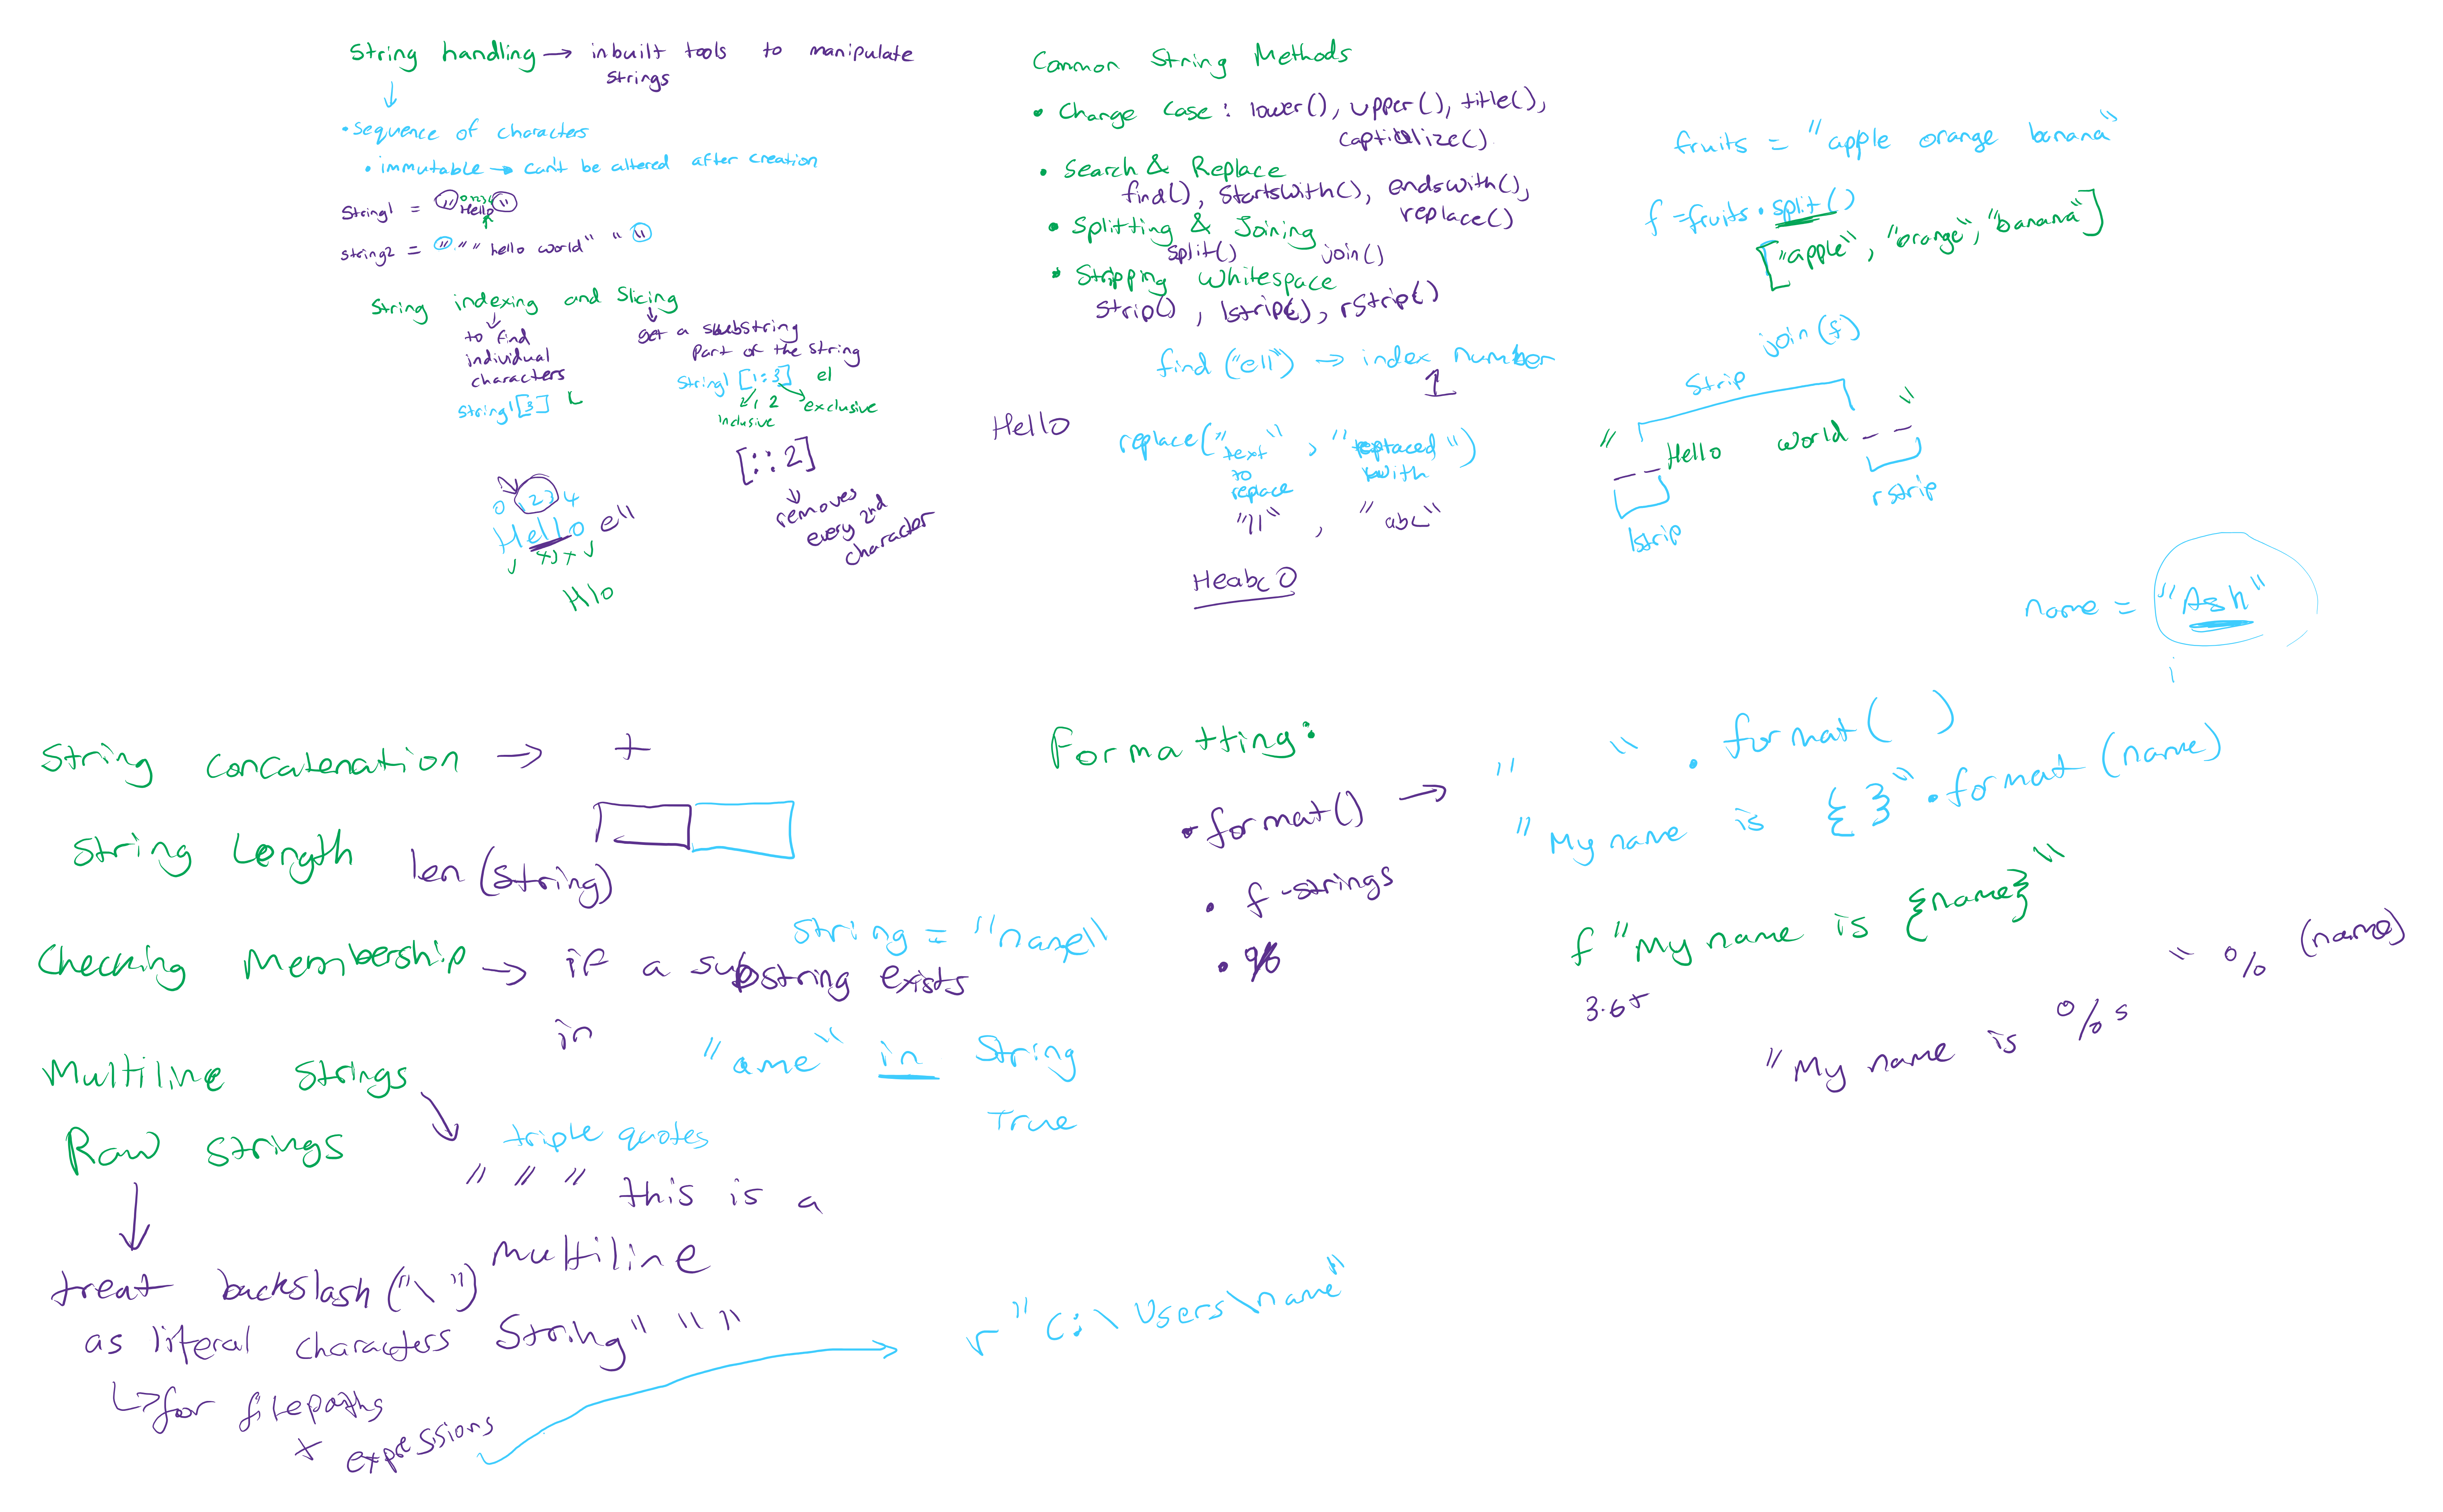 String handling → inbuilt tools to manipulate
strings
• sequence of characters
• immutable → can't be altered after creation
String1 = "Hello"
string2 = " " " hello world " " "
String indexing and Slicing
to find
individual
characters
String1[3] L
get a substring
part of the string
String1 [1:3] el
1, 2
inclusive
exclusive
[::2]
removes
every 2nd
character
0 1 2 3 4
Hello ell
Hlo
Common String Methods
• Change Case : lower(), upper(), title(),
captitalize()
• Search & Replace
find(), startswith(), endswith(),
replace()
• Splitting & Joining
split() join()
• Stripping Whitespace
strip(), lstrip(), rstrip()
find ("ell") → index number
1
Hello
replace("text" , "replaced")
to
replace
with
"ll" , "abc"
Heabc0
fruits = "apple orange banana"
f = fruits.split()
["apple", "orange", "banana"]
join(f)
Strip
" _ _ Hello world _ _ "
lstrip
rstrip
name = "Ash"
String Concatenation → +
String Length len(string)
Checking Membership → if a substring exists
in
string = "name"
"ame" in String
True
Multiline Strings
triple quotes
" " " this is a
multiline
String " " "
Raw strings
treat backslash("\")
as literal characters
↳ for filepaths
+ expressions
r"C:\Users\name"
Formatting:
• format() → " " . format( )
"My name is {}".format(name)
• f-strings
f "My name is {name}"
3.6+
• %
"My name is %s " % (name)